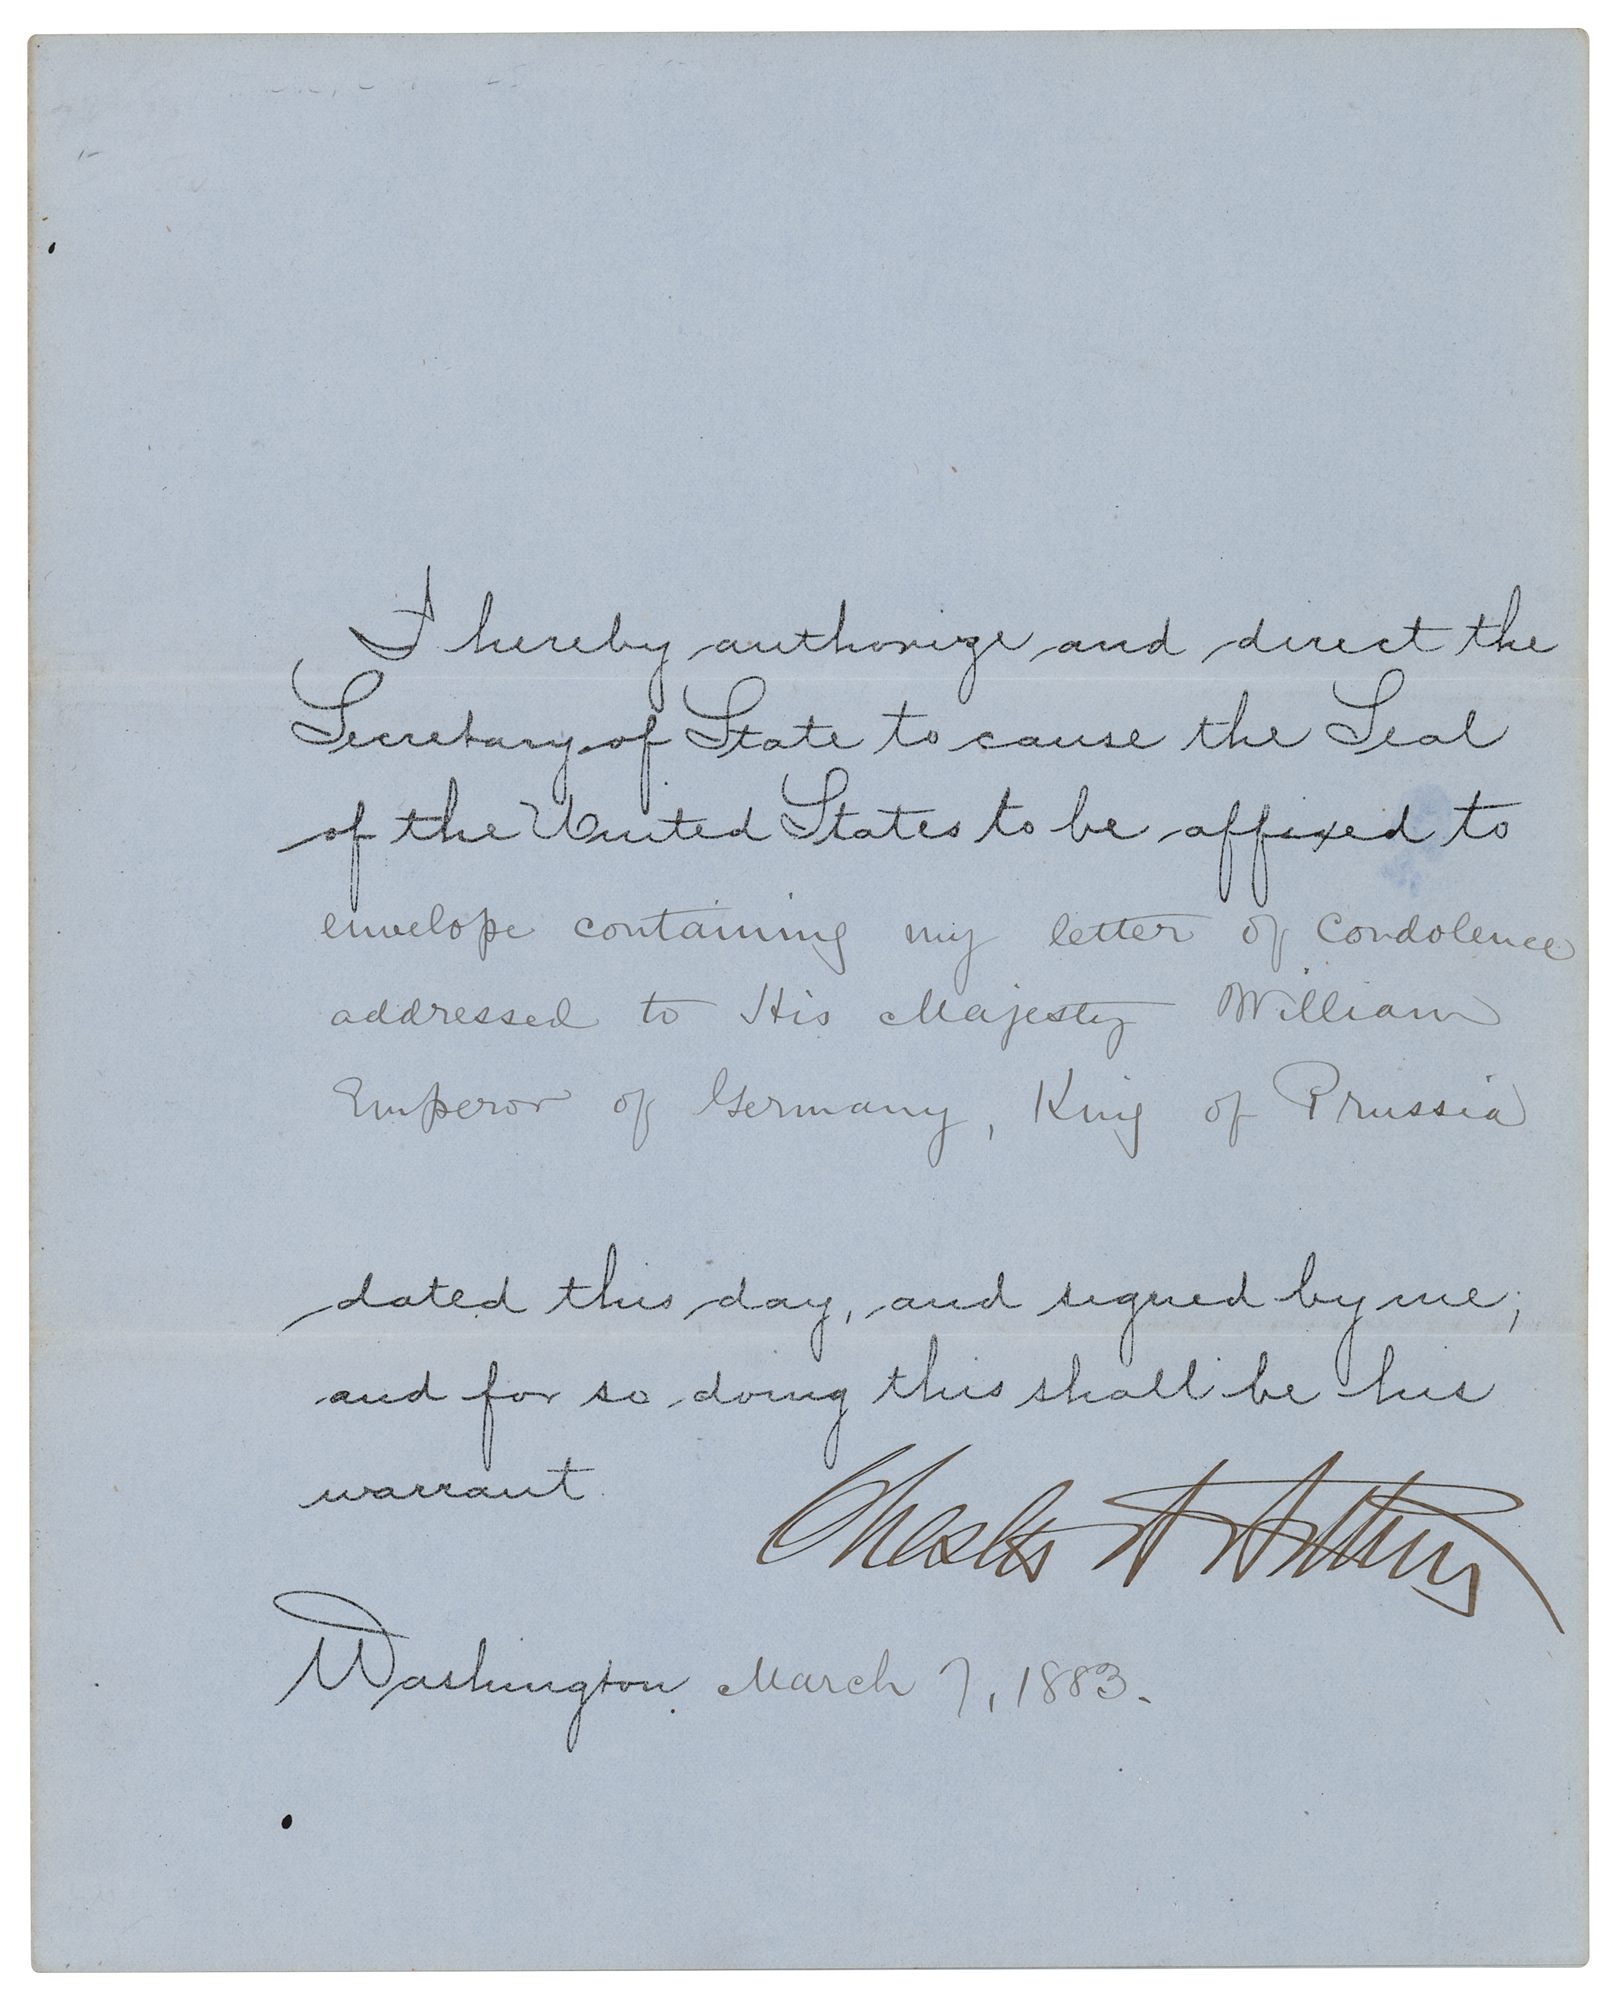 I hereby authorize and direct the
Secretary of State to cause the Seal
of the United States to be affixed to
envelope containing my letter of condolence
addressed to His Majesty William
Emperor of Germany, King of Prussia
dated this day, and signed by me;
and for so doing this shall be his
warrant.
Chester A Arthur
Washington, March 7, 1883.